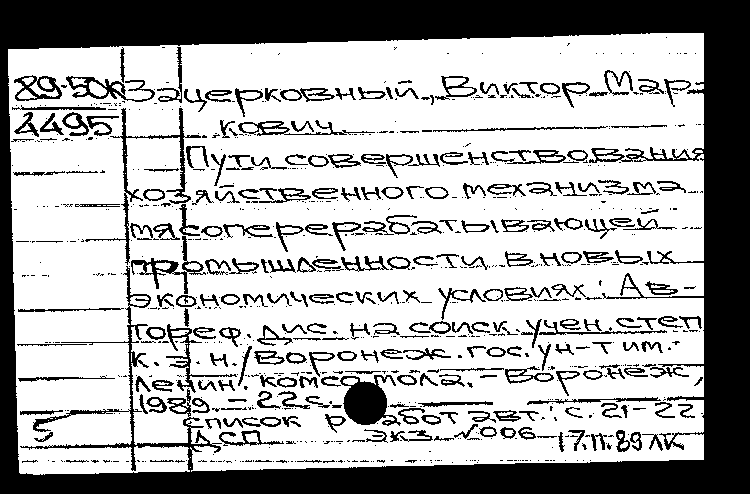 89-50к Зацерковный, Виктор Мар-
4495 кович.
Пути совершенствования
хозяйственного механизма
мясоперерабатывающей
промышленности в новых
экономических условиях: Ав-
тореф. дис. на соиск. учен. степ
к. э. н./Воронеж. гос. ун-т им.
Ленин. комсомола. - Воронеж,
1989 - 22 с.
5 список работ авт.: с. 21-22.
ДСП экз. №006 17.11.89 ЛК